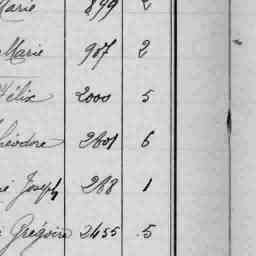 Marie 849 2
Marie 907 2
Félix 2000 5
Théodore 2601 6
Joseph 288 1
Grégoire 2455 5